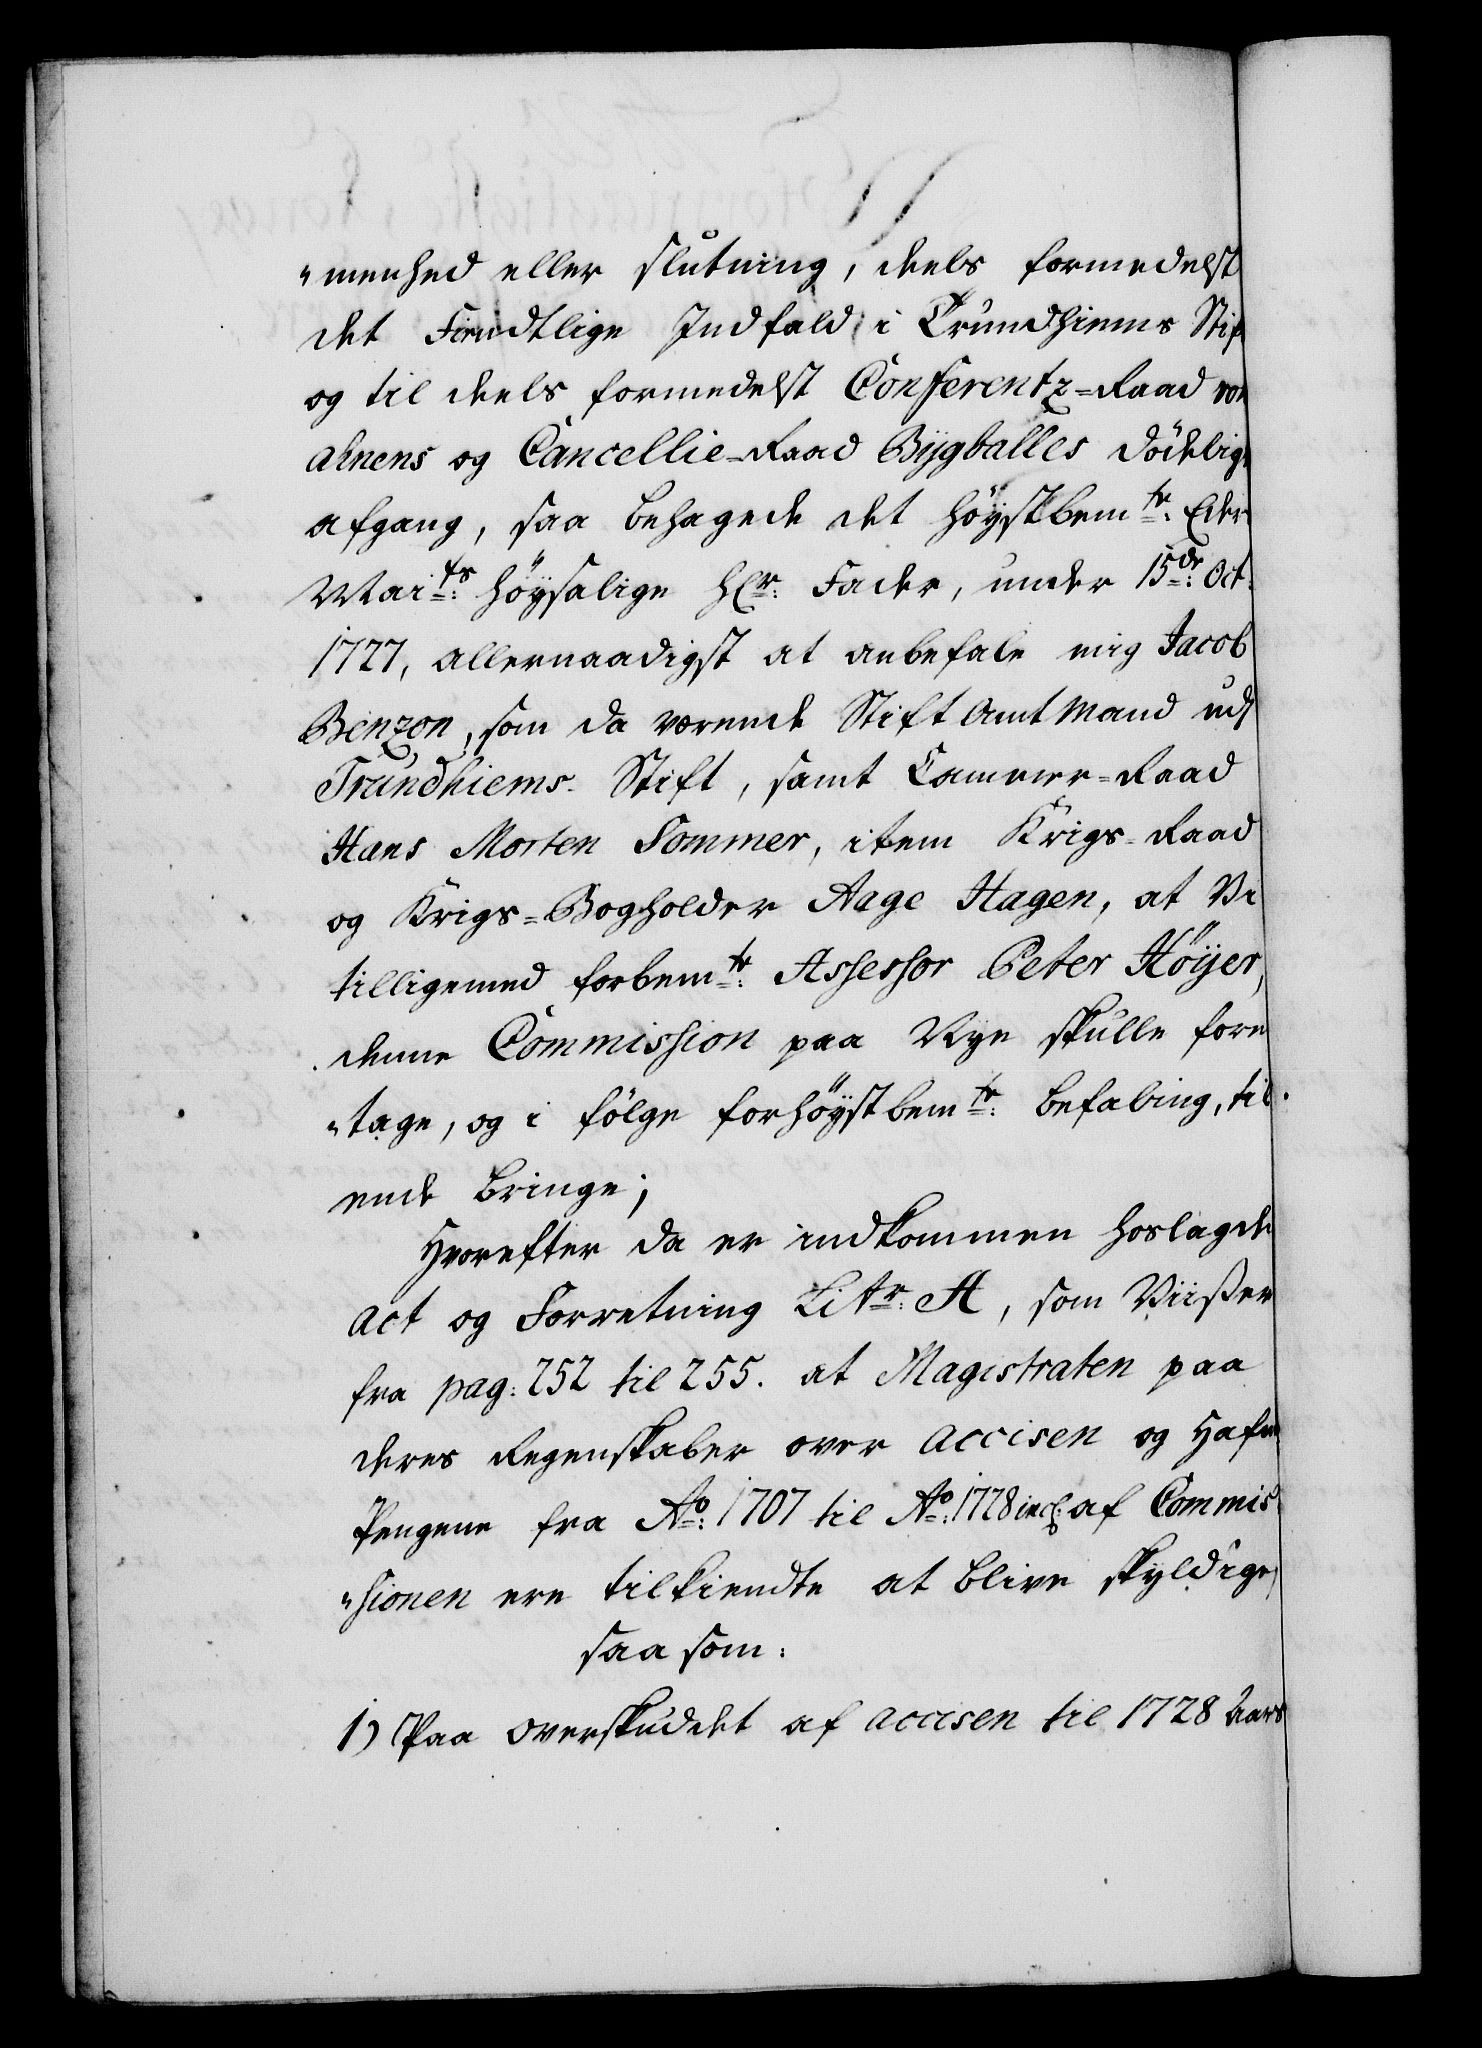 "menhed eller slutning, deels formedelst
det Fiendtlige Indfald i Trundhiems Stif
og til deels formedelst Conferentz-Raad von
Ahnens og Cancellie-Raad Bygballes dödelige
afgang, saa behagede det höystbemte: Eders
Maits: höysalige Hr: Fader, under 15de: Oct.
1727, allernaadigst at anbefale mig Jacob
Benzon, som da værende Stift Amt Mand udi
Trundhiems Stift, samt Cammer-Raad
Hans Morten Sommer, item Krigs-Raad
og Krigs-Bogholder Aage Hagen, at Vi
tilligemed forbemte: Assessor Peter Höyer,
denne Commission paa Nye skulle fore
"tage, og i fölge forhöystbemte: befaling, til
ende bringe;
Hvorefter da er indkommen hoslagde
Act og Forretning Litr: A, som Viiser
fra pag: 252 til 255. at Magistraten paa
deres Regenskaber over Accisen og Hafne
Pengene fra Ao: 1707 til Ao: 1728 incl: af Commis
"sionen ere tilkiendte at blive skyldige,
saa som:
1) Paa overskuddet af Accisen til 1728 Aars